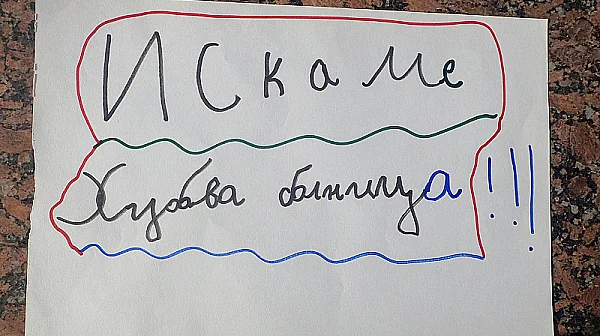 Искаме
Хубава болница!!!